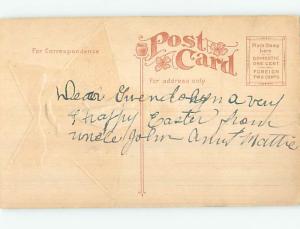 Post
Card
For Correspondence
For address only
Place Stamp
here
DOMESTIC
ONE CENT
FOREIGN
TWO CENTS
Dear Gwendolyn a very
& happy Easter from
uncle John Aunt Mattie